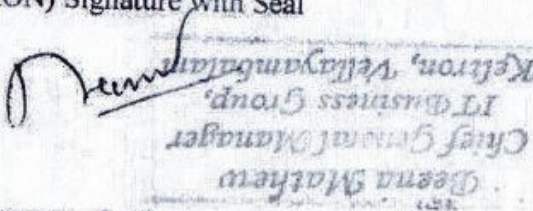 ON) Signature with Seal
Beena Mathew
Chief General Manager
IT Business Group,
Keltron, Vellayambalam